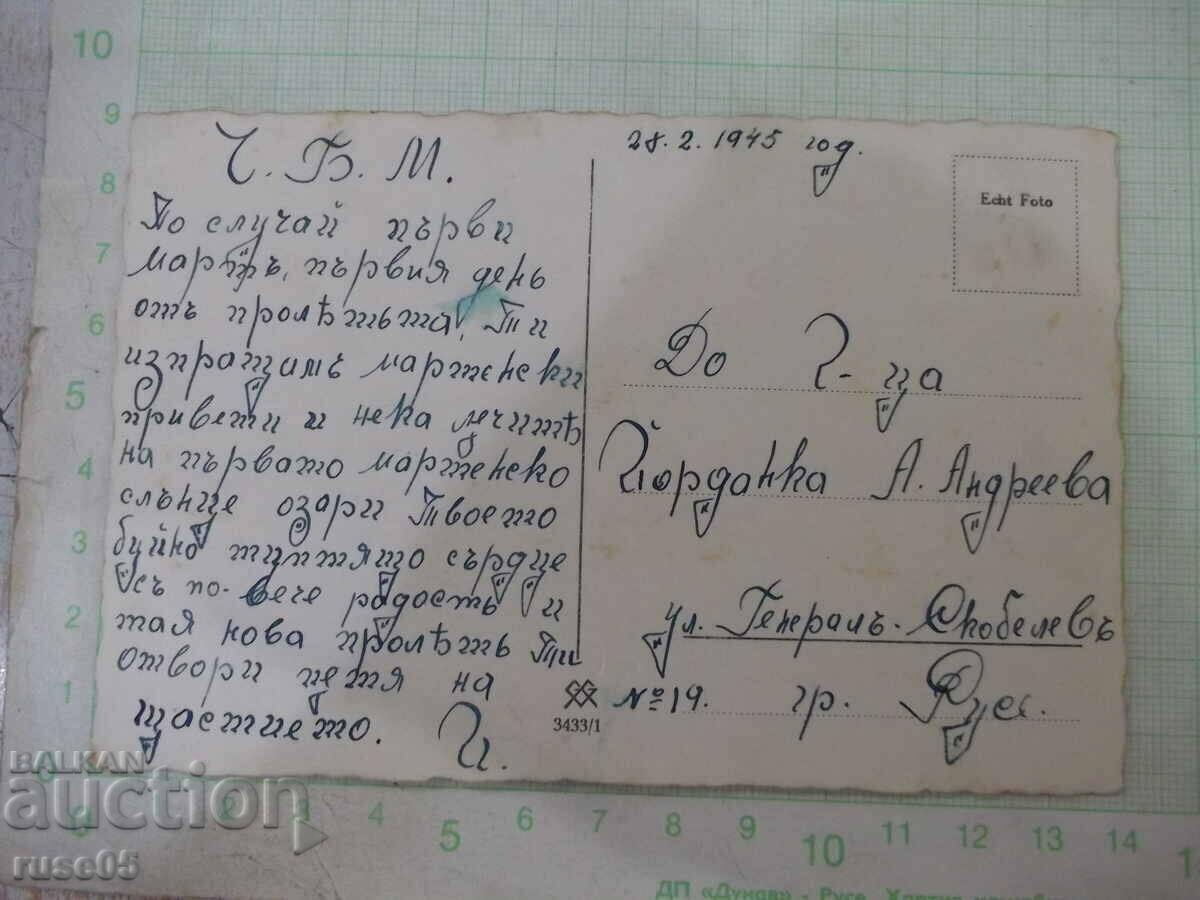 Ч. Б. М.
По случай първи
мартъ, първия день
отъ пролѣтьта, Ти
изпращамъ мартенски
привети и нека лъчитѣ
на първото мартенско
слънце озари Твоето
буйно туптящо сърдце
съ по-вече радость и
тая нова пролѣть Ти
отвори пѫтя на
щастието. И.
28.2.1945 год.
Echt Foto
До Г-ца
Йорданка А. Андреева
ул. Генералъ-Скобелевъ
№ 19. гр. Русе.
3433/1
10
9
8
7
6
5
4
3
2
1
2
3
4
5
6
7
8
9
10
11
12
13
14
BALKAN
auction
ruse05
ДП «Дунав» - Русе.